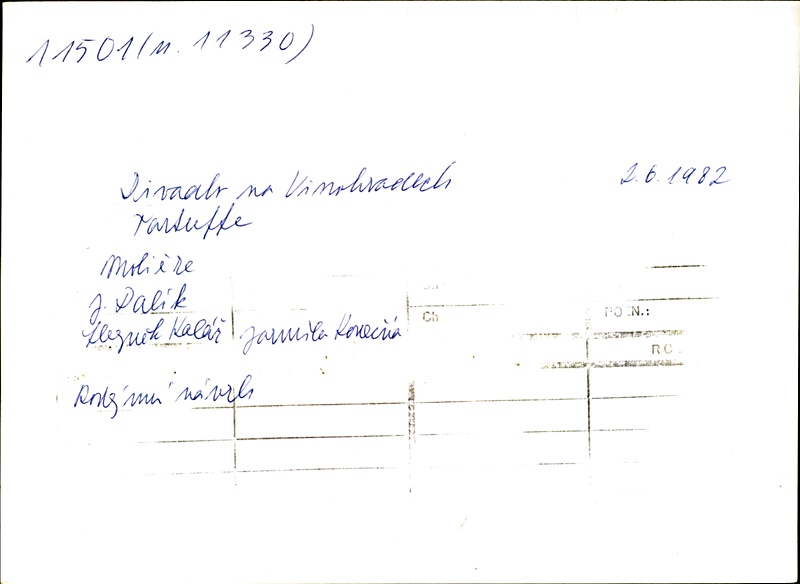 11501(n. 11330)
Divadlo na Vinohradech 2.6.1982
Tartuffe
Molière
J. Dalík
Zbyněk Kolář Jarmila Konečná
Ch
POZN.:
návrh